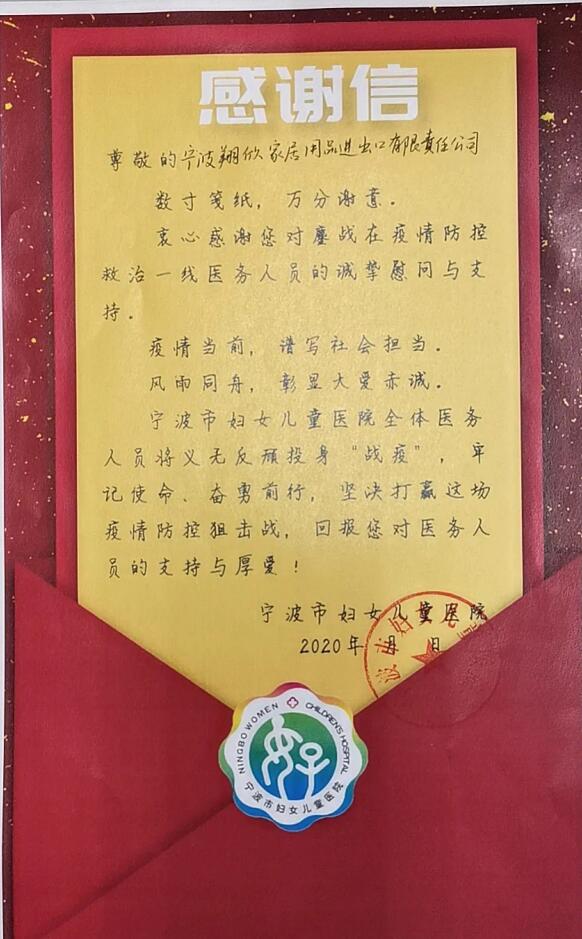 感谢信
尊敬的宁波翔欣家居用品进出口有限责任公司
数寸笺纸，万分谢意。
衷心感谢您对鏖战在疫情防控
救治一线医务人员的诚挚慰问与支
持。
疫情当前，谱写社会担当。
风雨同舟，彰显大爱赤诚。
宁波市妇女儿童医院全体医务
人员将义无反顾投身“战疫”，牢
记使命、奋勇前行，坚决打赢这场
疫情防控狙击战，回报您对医务人
员的支持与厚爱！
宁波市妇女儿童医院
2020年 月 日
NINGBO WOMEN CHILDREN'S HOSPITAL
宁波市妇女儿童医院